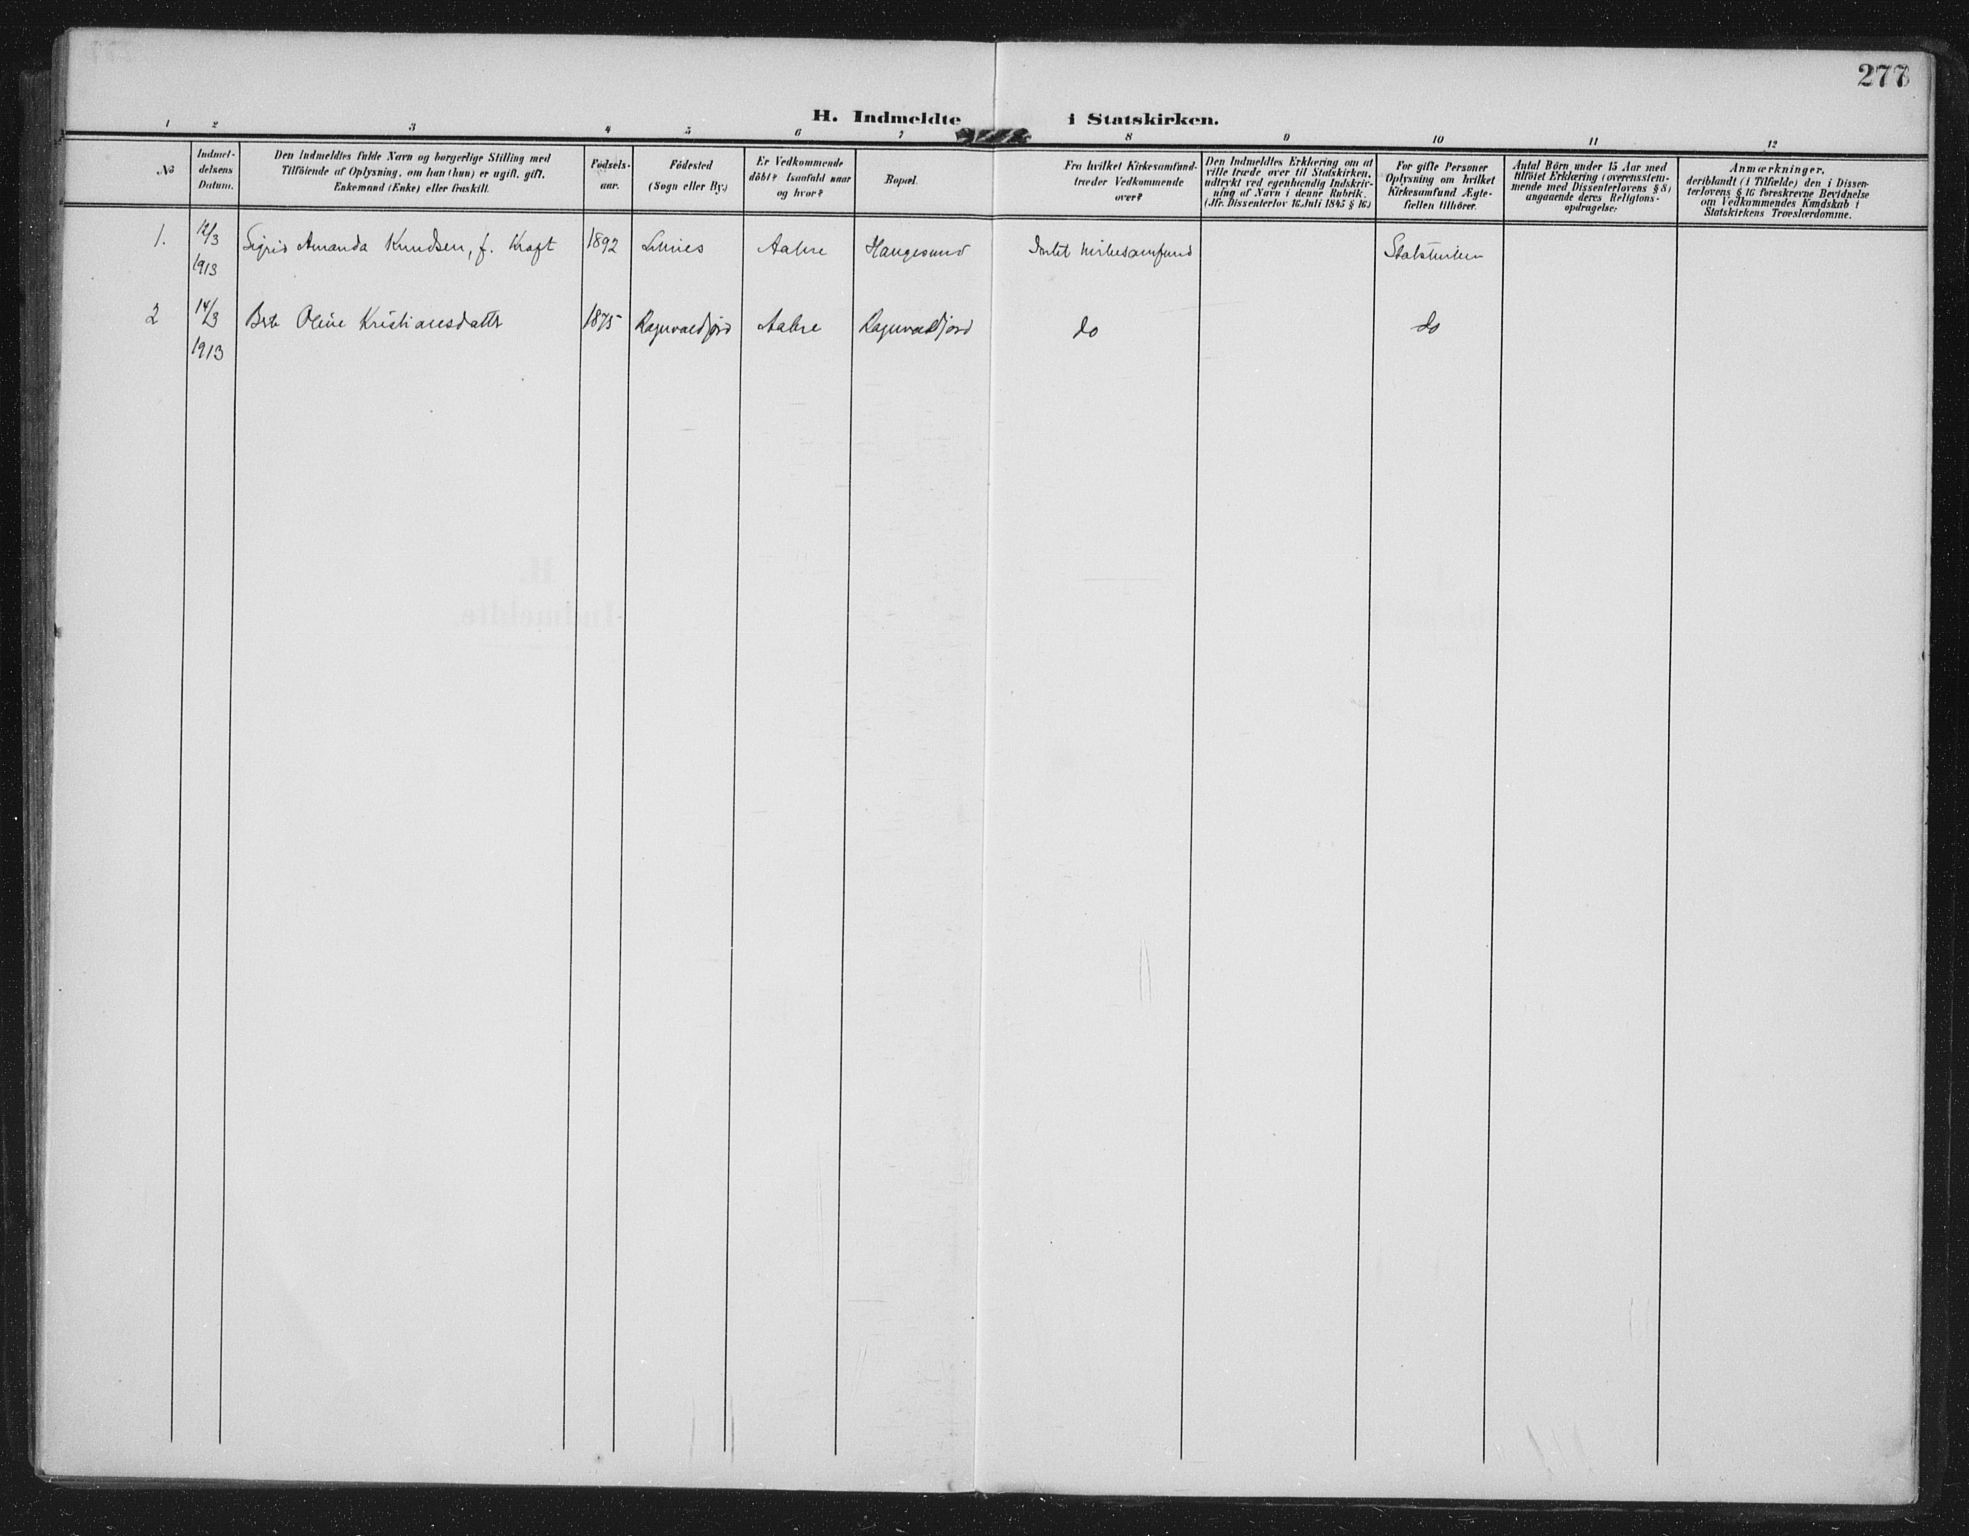 277
H. Indmeldte i Statskirken.
1 2 3 4 5 6 7 8 9 10 11 12
No
Indmel-
delsens
Datum.
Den Indmeldtes fulde Navn og borgerlige Stilling med
Tilföiende af Oplysning, om han (hun) er ugift, gift,
Enkemand (Enke) eller fraskilt.
Fødsels-
aar.
Födested
(Sogn eller By.)
Er Vedkommende
döbt? Isaafald naar
og hvor?
Bopæl.
Fra hvilket Kirkesamfund
træder Vedkommende
over?
Den Indmeldtes Erklæring om at
ville træde over til Statskirken,
udtrykt ved egenhændig Indskriv-
ning af Navn i denne Rubrik.
(Jfr. Dissenterlov 16 Juli 1845 § 16.)
For gifte Personer
Oplysning om hvilket
Kirkesamfund Ægte-
fællen tilhörer.
Antal Börn under 15 Aar med
tilföiet Erklæring (overensstem-
mende med Dissenterlovens § 8)
angaaende deres Religions-
opdragelse:
Anmærkninger,
deriblandt (i Tilfælde) den i Dissen-
terlovens § 16 foreskrevne Bevidnelse
om Vedkommendes Kundskab i
Statskirkens Troeslærdomme.
1. 12/3 Sigrid Amanda Knudsen, f. Kraft 1892 Aakre Haugesund Intet kirkesamfund Statskirken
1913
2 14/3 Berte Oline Kristiansdatter 1875 Ragnvaldjord Aakre Ragnvaldjord do do
1913